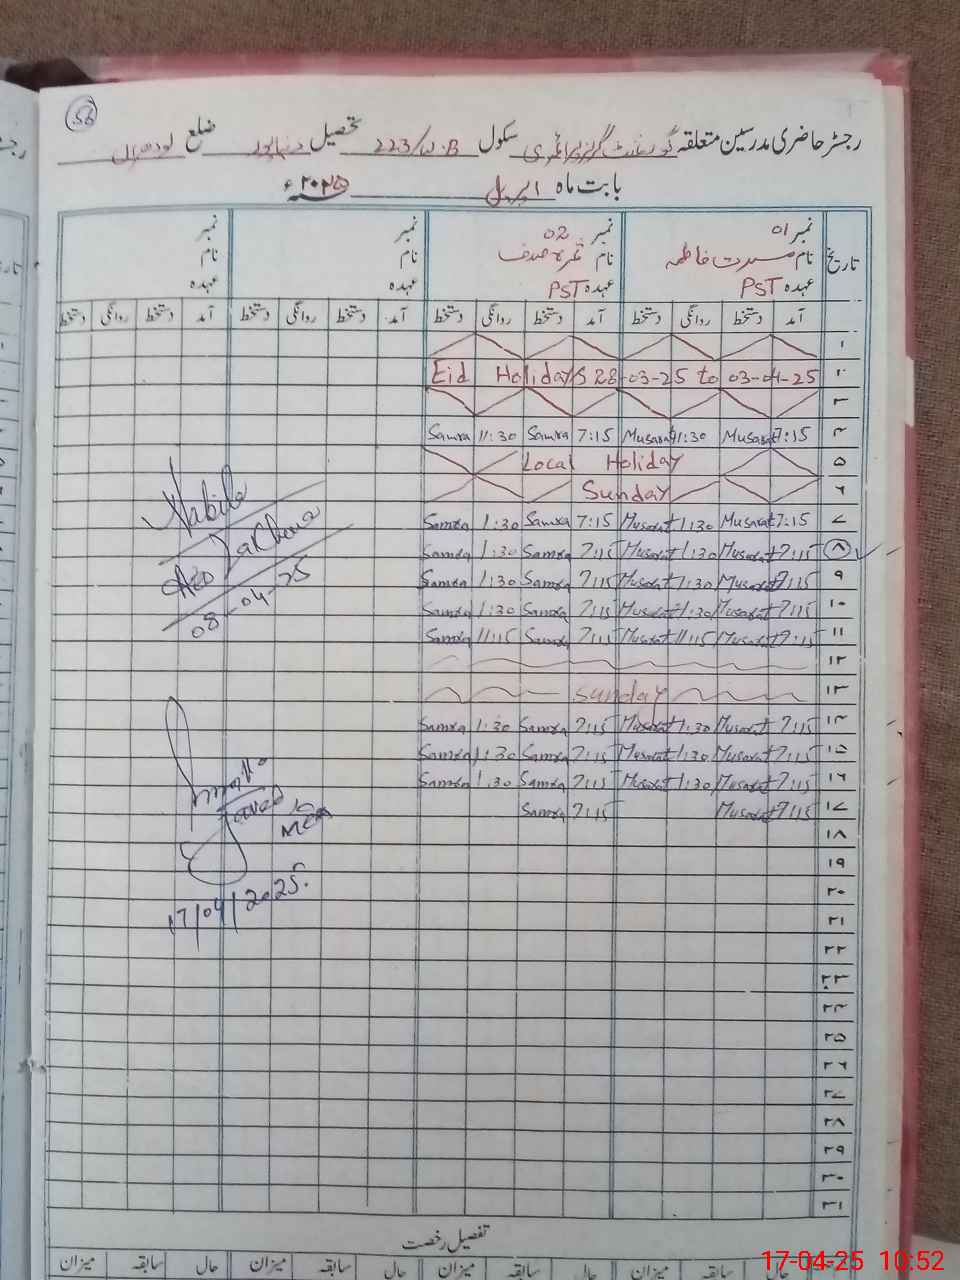 56
رجسٹر حاضری مدرسین متعلقہ گورنمنٹ گرلز پرائمری سکول 223/W.B تحصیل دنیاپور ضلع لودھراں
بابت ماہ اپریل ۲۰۲۵ء
تاریخ نمبر 01 نمبر 02 نمبر نمبر
نام مسرت فاطمہ نام ثمرہ صدف نام نام
عہدہ PST عہدہ PST عہدہ عہدہ
آمد دستخط روانگی دستخط آمد دستخط روانگی دستخط آمد دستخط روانگی دستخط آمد دستخط روانگی دستخط
۱
۲ Eid Holidays 28-03-25 to 03-04-25
۳
۴ 7:15 Musarat 11:30 Musarat 7:15 Samra 11:30 Samra
۵ Local Holiday
۶ Sunday
۷ 7:15 Musarat 1:30 Musarat 7:15 Samra 1:30 Samra
۸ 7:15 Musarat 1:30 Musarat 7:15 Samra 1:30 Samra
۹ 7:15 Musarat 1:30 Musarat 7:15 Samra 1:30 Samra
۱۰ 7:15 Musarat 1:30 Musarat 7:15 Samra 1:30 Samra
۱۱ 7:15 Musarat 11:15 Musarat 7:15 Samra 11:15 Samra
۱۲
۱۳ Sunday
۱۴ 7:15 Musarat 1:30 Musarat 7:15 Samra 1:30 Samra
۱۵ 7:15 Musarat 1:30 Musarat 7:15 Samra 1:30 Samra
۱۶ 7:15 Musarat 1:30 Musarat 7:15 Samra 1:30 Samra
۱۷ 7:15 Musarat 7:15 Samra
۱۸
۱۹
۲۰
۲۱
۲۲
۲۳
۲۴
۲۵
۲۶
۲۷
۲۸
۲۹
۳۰
۳۱
Nabila
AEO
08-04-25
Javed
MEA
17/04/2025.
تفصیل رخصت
حال سابقہ میزان حال سابقہ میزان حال سابقہ میزان حال سابقہ میزان
17-04-25 10:52